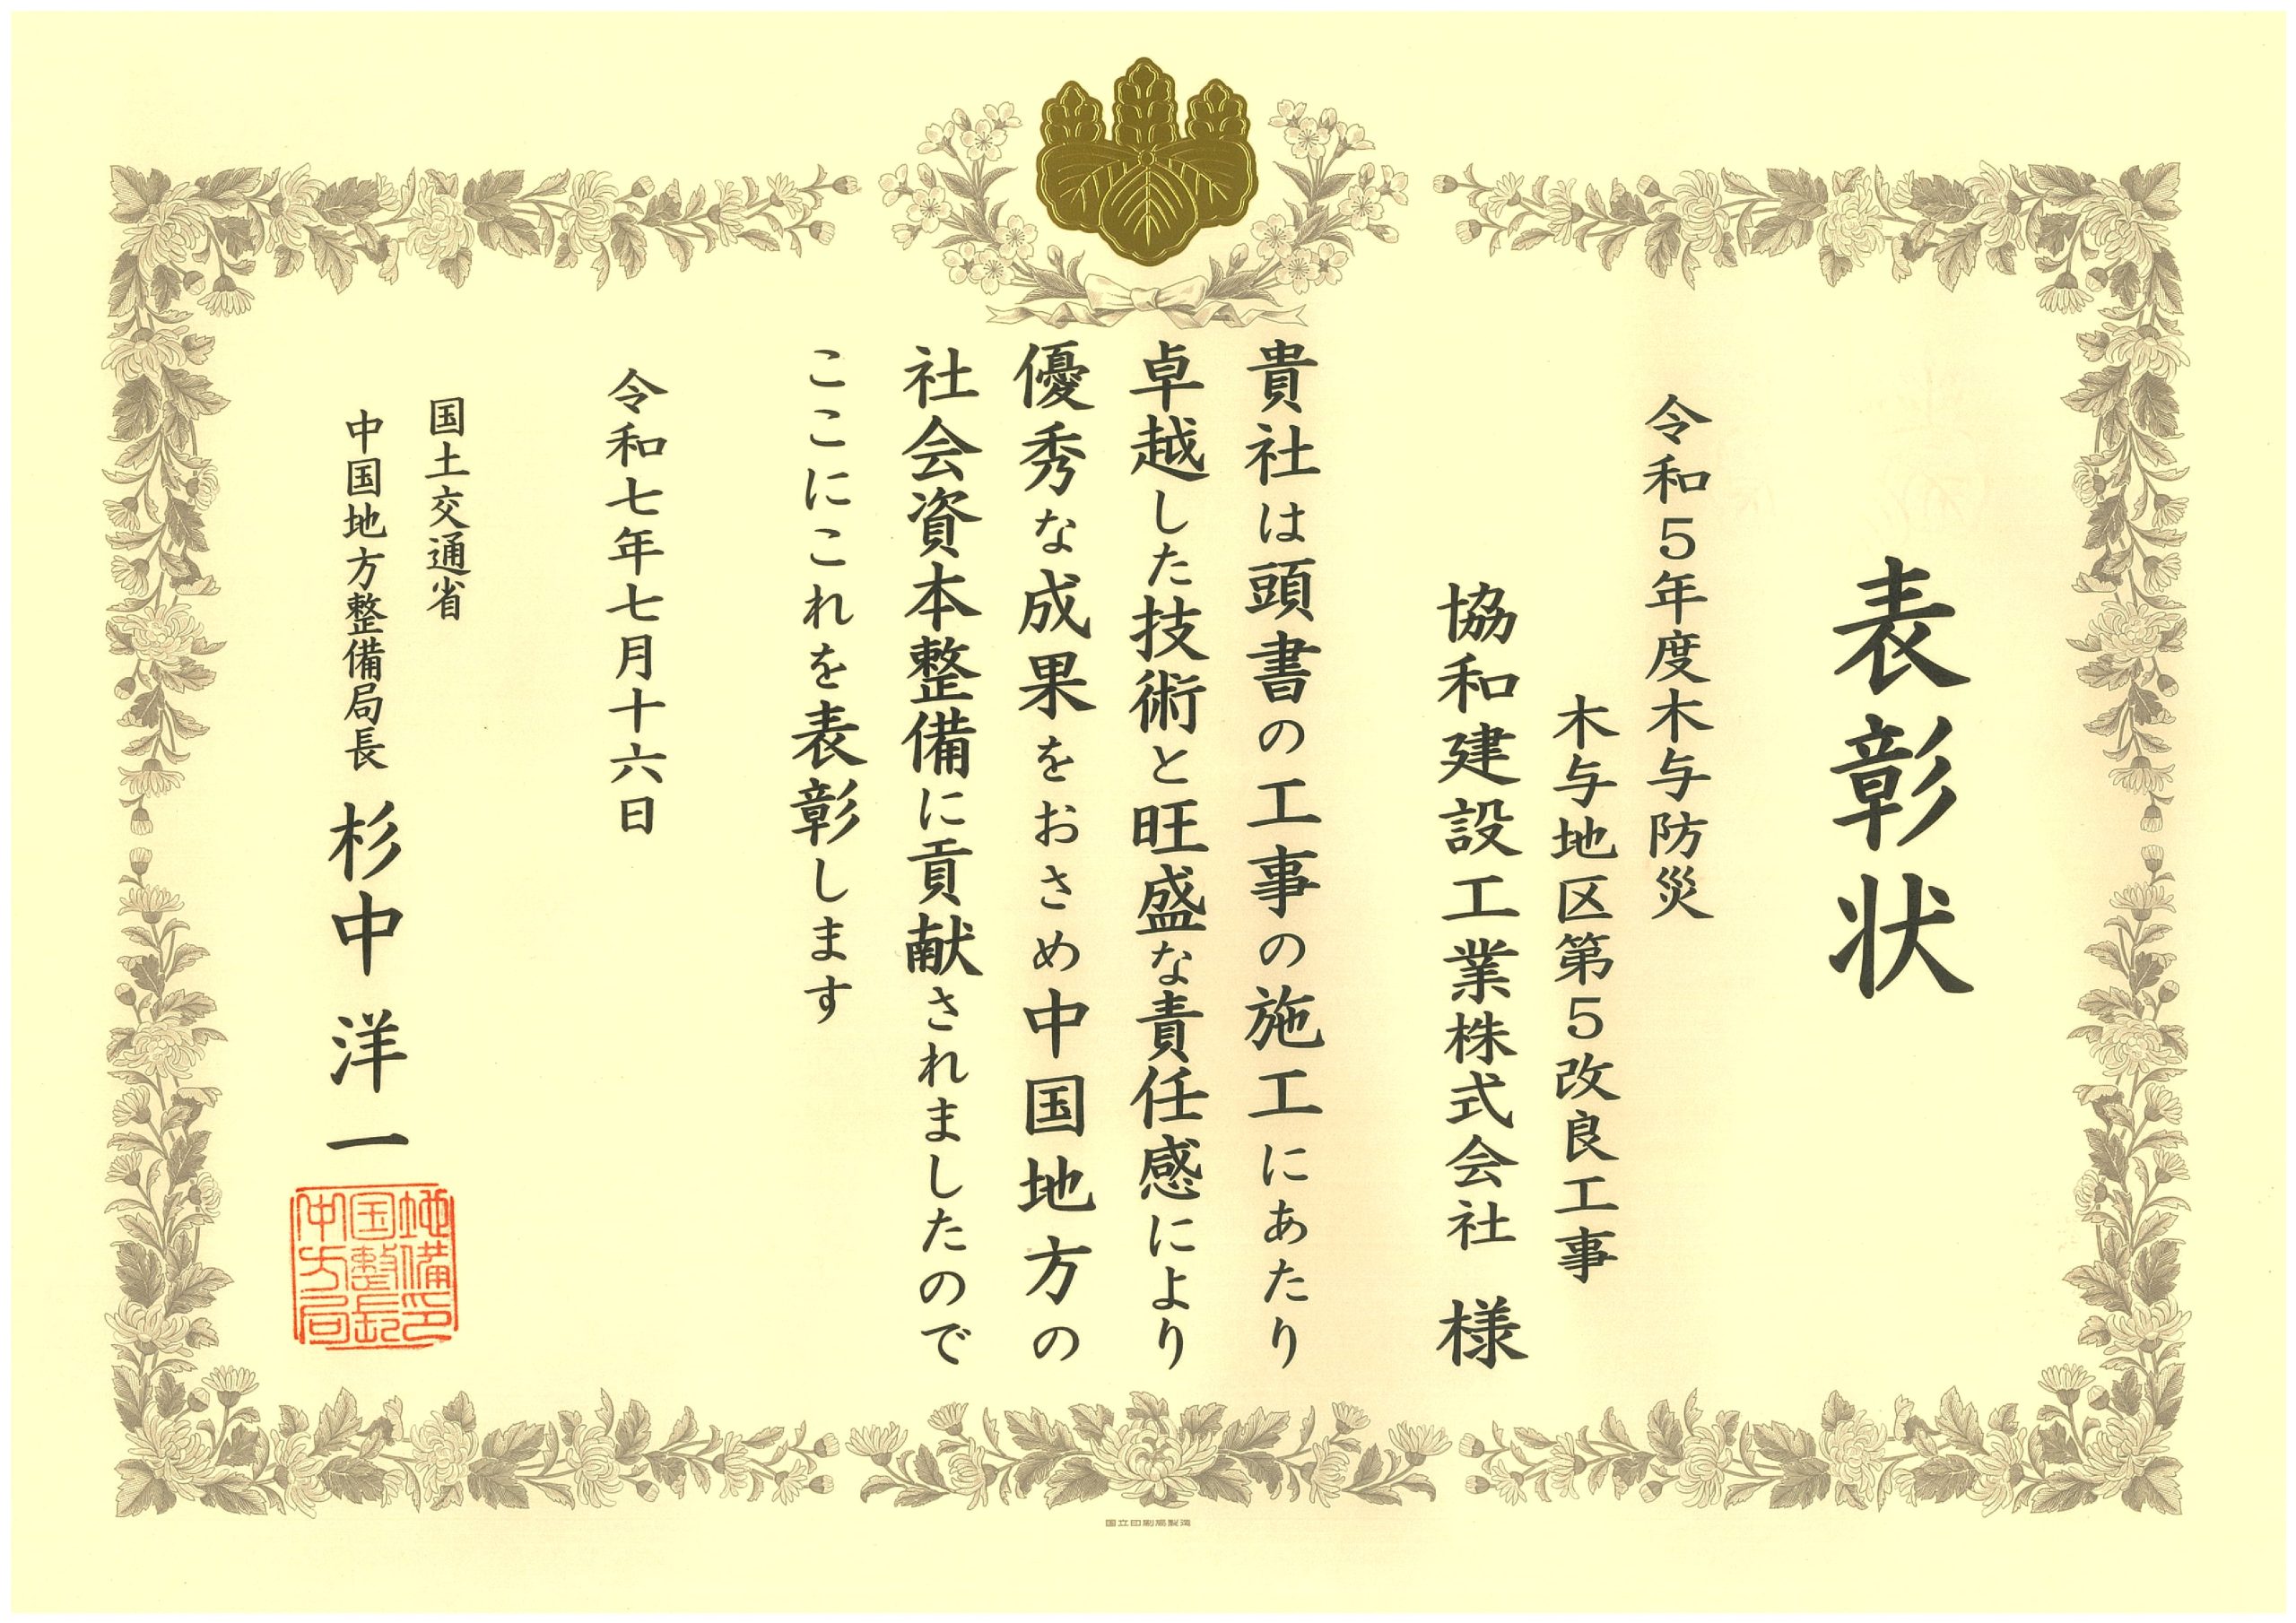 表彰状
令和５年度木与防災
木与地区第５改良工事
協和建設工業株式会社 様
貴社は頭書の工事の施工にあたり
卓越した技術と旺盛な責任感により
優秀な成果をおさめ中国地方の
社会資本整備に貢献されましたので
ここにこれを表彰します
令和七年七月十六日
国土交通省
中国地方整備局長 杉中 洋一
地備印
国整長
中方局
国立印刷局製造